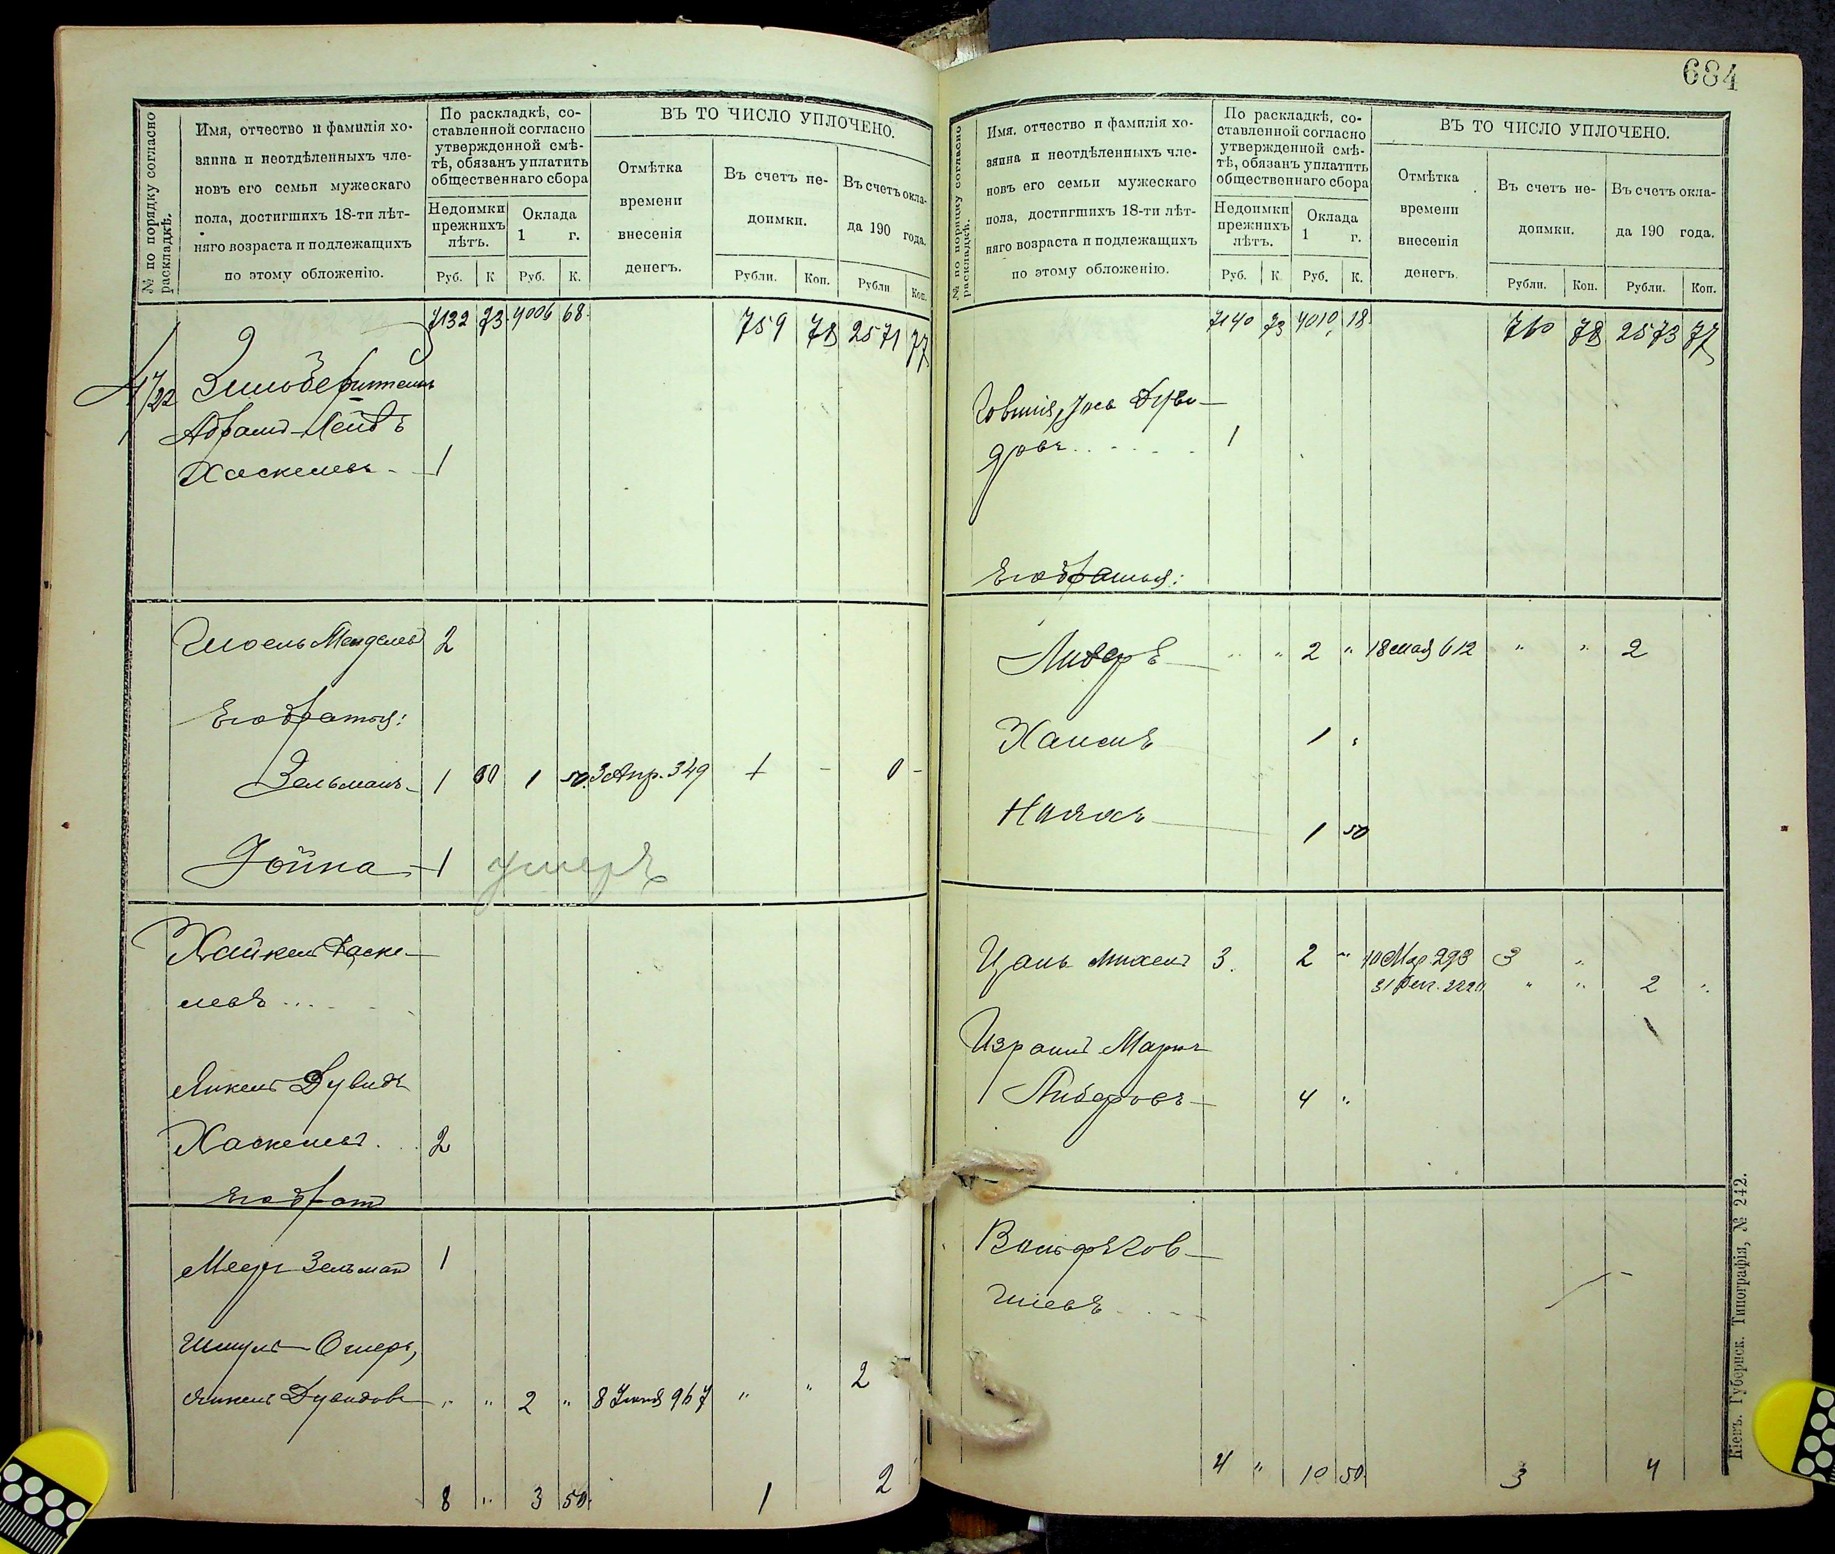 № по порядку согласно раскладкѣ.
Имя, отчество и фамилія хо-
зяина и неотдѣленныхъ чле-
новъ его семьи мужескаго
пола, достигшихъ 18-ти лѣт-
няго возраста и подлежащихъ
по этому обложенію.
По раскладкѣ, со-
ставленной согласно
утвержденной смѣ-
тѣ, обязанъ уплатить
общественнаго сбора
Недоимки прежнихъ лѣтъ.
Оклада 1 г.
Руб. К Руб. К.
ВЪ ТО ЧИСЛО УПЛОЧЕНО.
Отмѣтка
времени
внесенія
денегъ.
Въ счетъ не-
доимки.
Рубли. Коп.
Въ счетъ окла-
да 190 года.
Рубли Коп.
7132 73 4006 68. 759 78 2571 77
Абрамъ-Лейбъ
Хаскелевъ 1
Мендель 2
Его братья:
Зельманъ 1 50 1 50. 3 Апр. 349 1 - 0 -
Іойна 1 умеръ
Хайкель Хаске-
левъ
Янкель Дувидъ
Хаскелев. 2
Его братъ
Мееръ Зельман 1
Шмуль-Ошеръ,
Янкель Дувидовъ " " 2 " 8 Іюня 967 " " 2
8 " 3 50. 1 2
684
№ по порядку согласно раскладкѣ.
Имя, отчество и фамилія хо-
зяина и неотдѣленныхъ чле-
новъ его семьи мужескаго
пола, достигшихъ 18-ти лѣт-
няго возраста и подлежащихъ
по этому обложенію.
По раскладкѣ, со-
ставленной согласно
утвержденной смѣ-
тѣ, обязанъ уплатить
общественнаго сбора
Недоимки прежнихъ лѣтъ.
Оклада 1 г.
Руб. К Руб. К.
ВЪ ТО ЧИСЛО УПЛОЧЕНО.
Отмѣтка
времени
внесенія
денегъ.
Въ счетъ не-
доимки.
Рубли. Коп.
Въ счетъ окла-
да 190 года.
Рубли. Коп.
7140 73 4010 18. 760 78 2573 77
Іось Дуви-
довъ 1
Его братья:
Либеръ " " 2 " 18 мая 612 " " 2
Хаимъ 1 "
1 50
Михель 3. 2 " 10 Мар. 293 3 "
31 " " 2 "
Израиль
Либеровъ 4 "
Вольфъ Гов-
шіевъ
4 " 10 50. 3 4
Кіевъ. Губернск. Типографія, № 242.